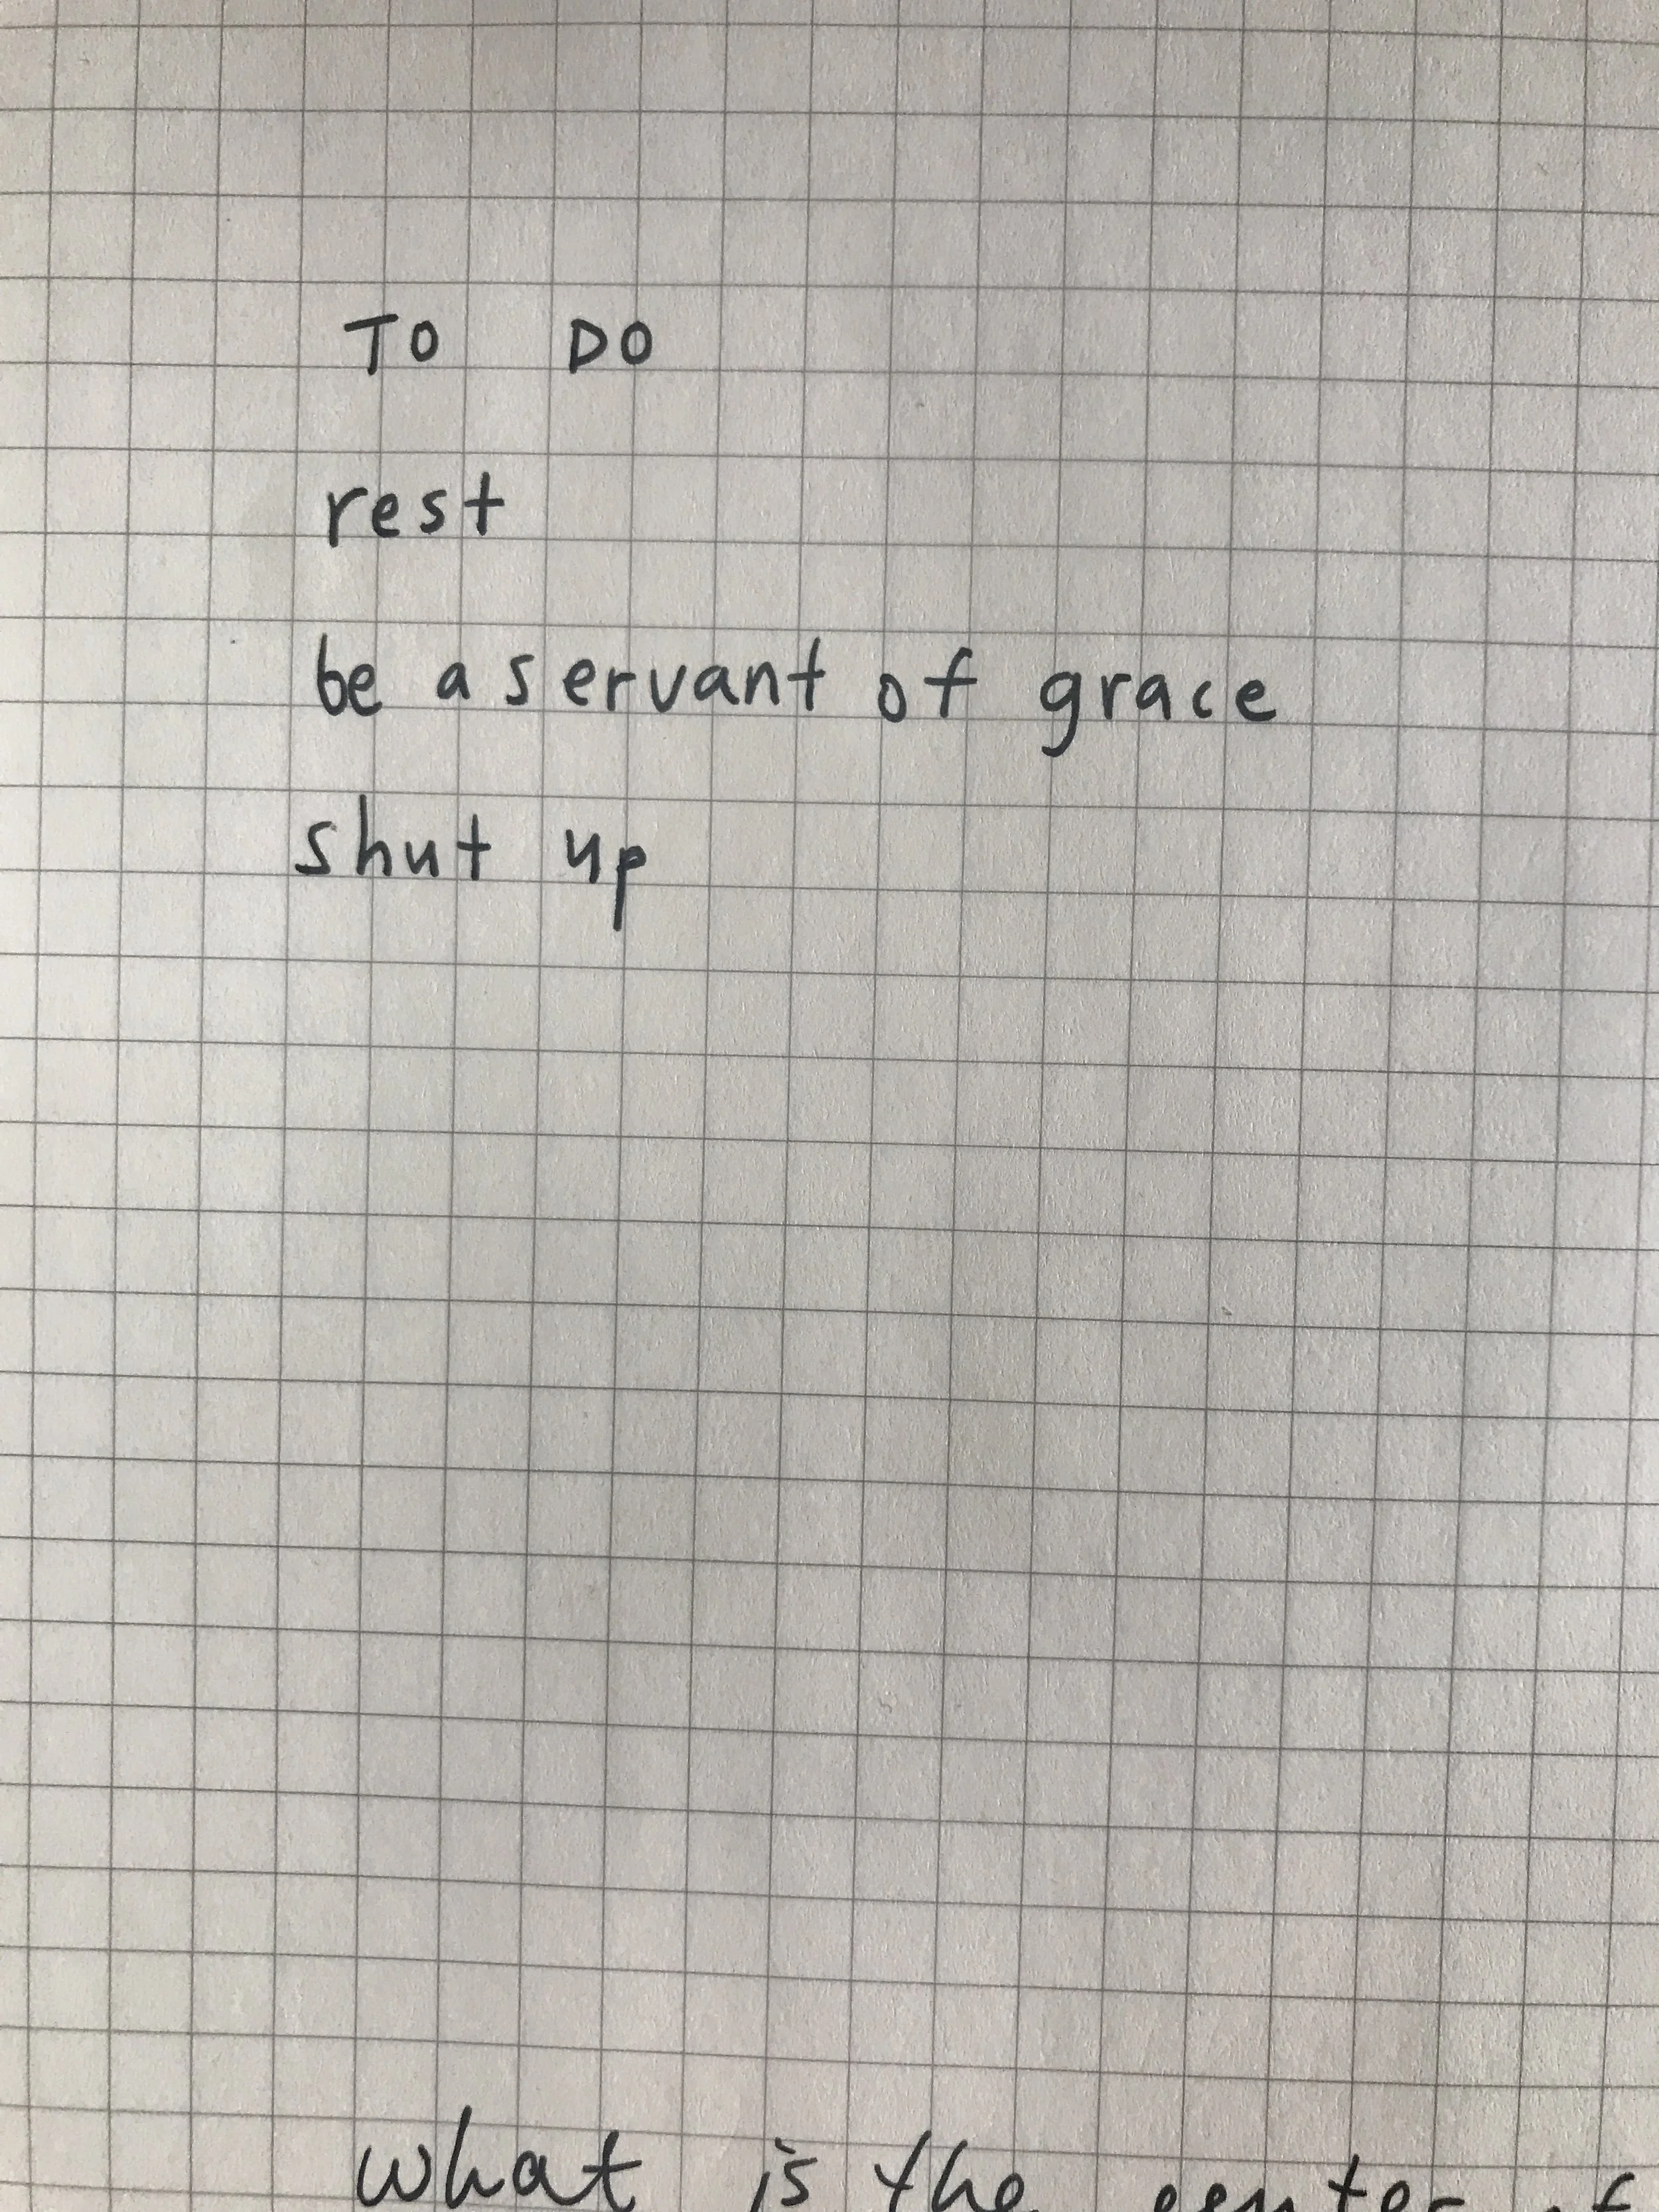 TO DO
rest
be a servant of grace
shut up
what is the center of